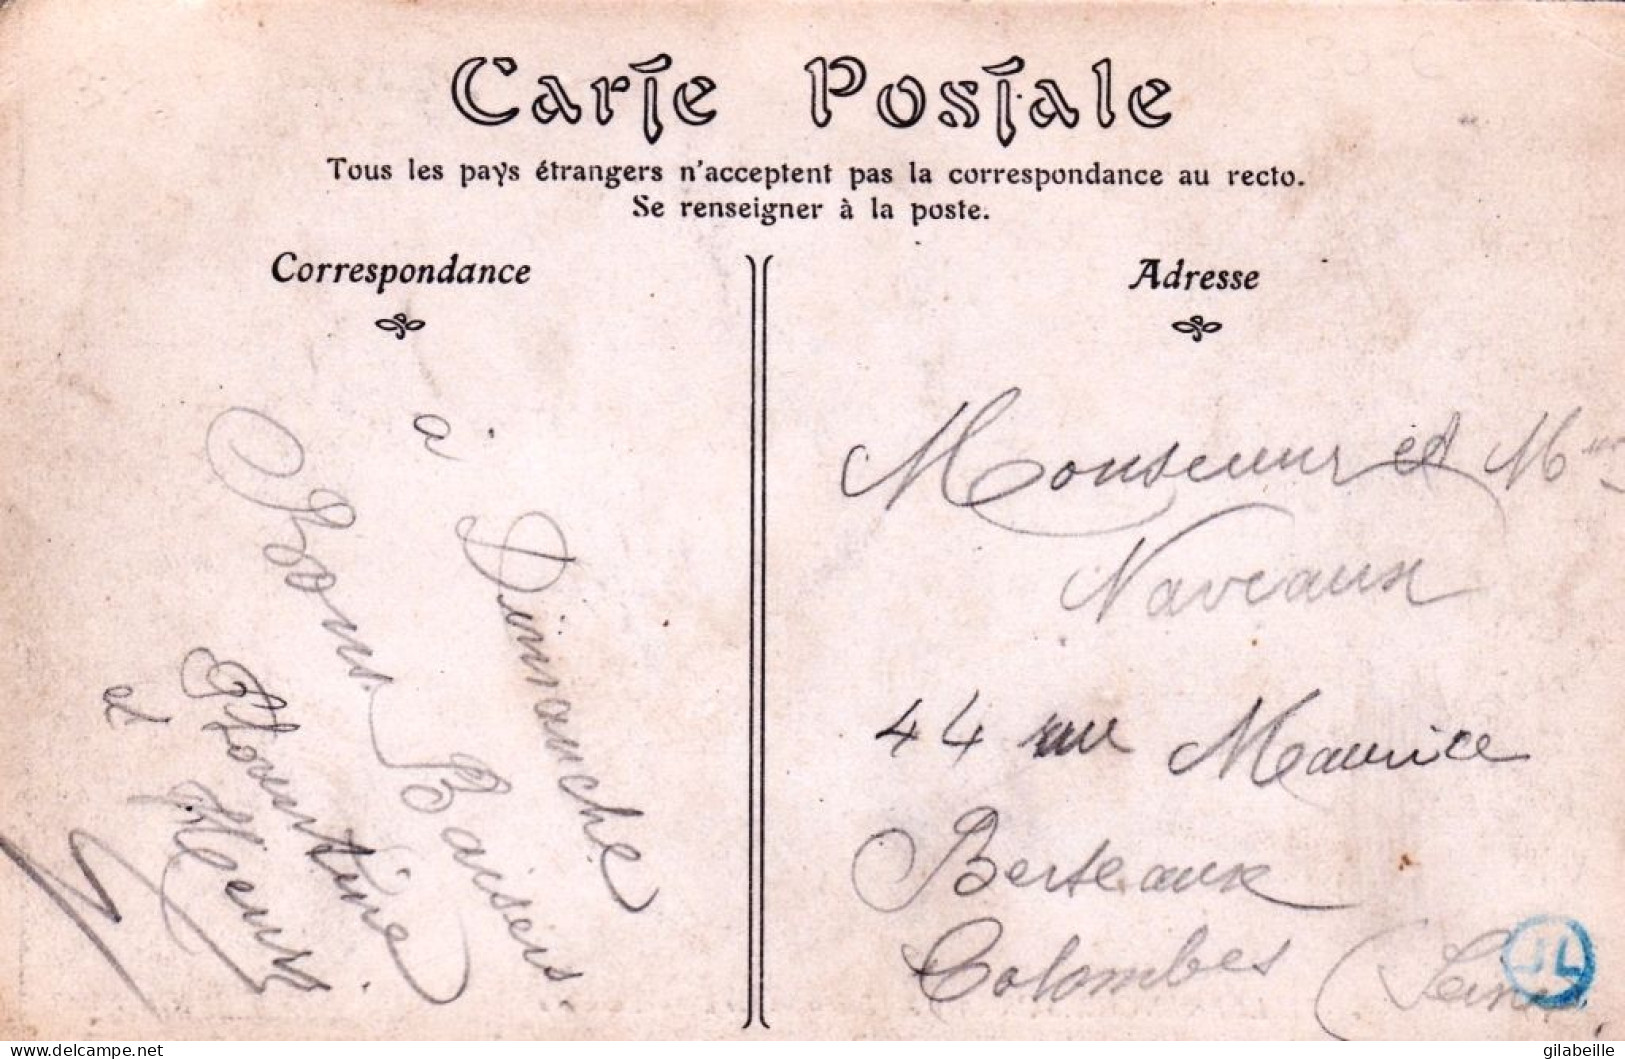 Carte Postale
Tous les pays étrangers n'acceptent pas la correspondance au recto.
Se renseigner à la poste.
Correspondance
à Dimanche
Bons Baisers
et
Adresse
Monsieur et Mme
Naveaux
44 rue Maurice
Berteaux
Colombes (Seine)
JL
delcampe.net
gilabeille